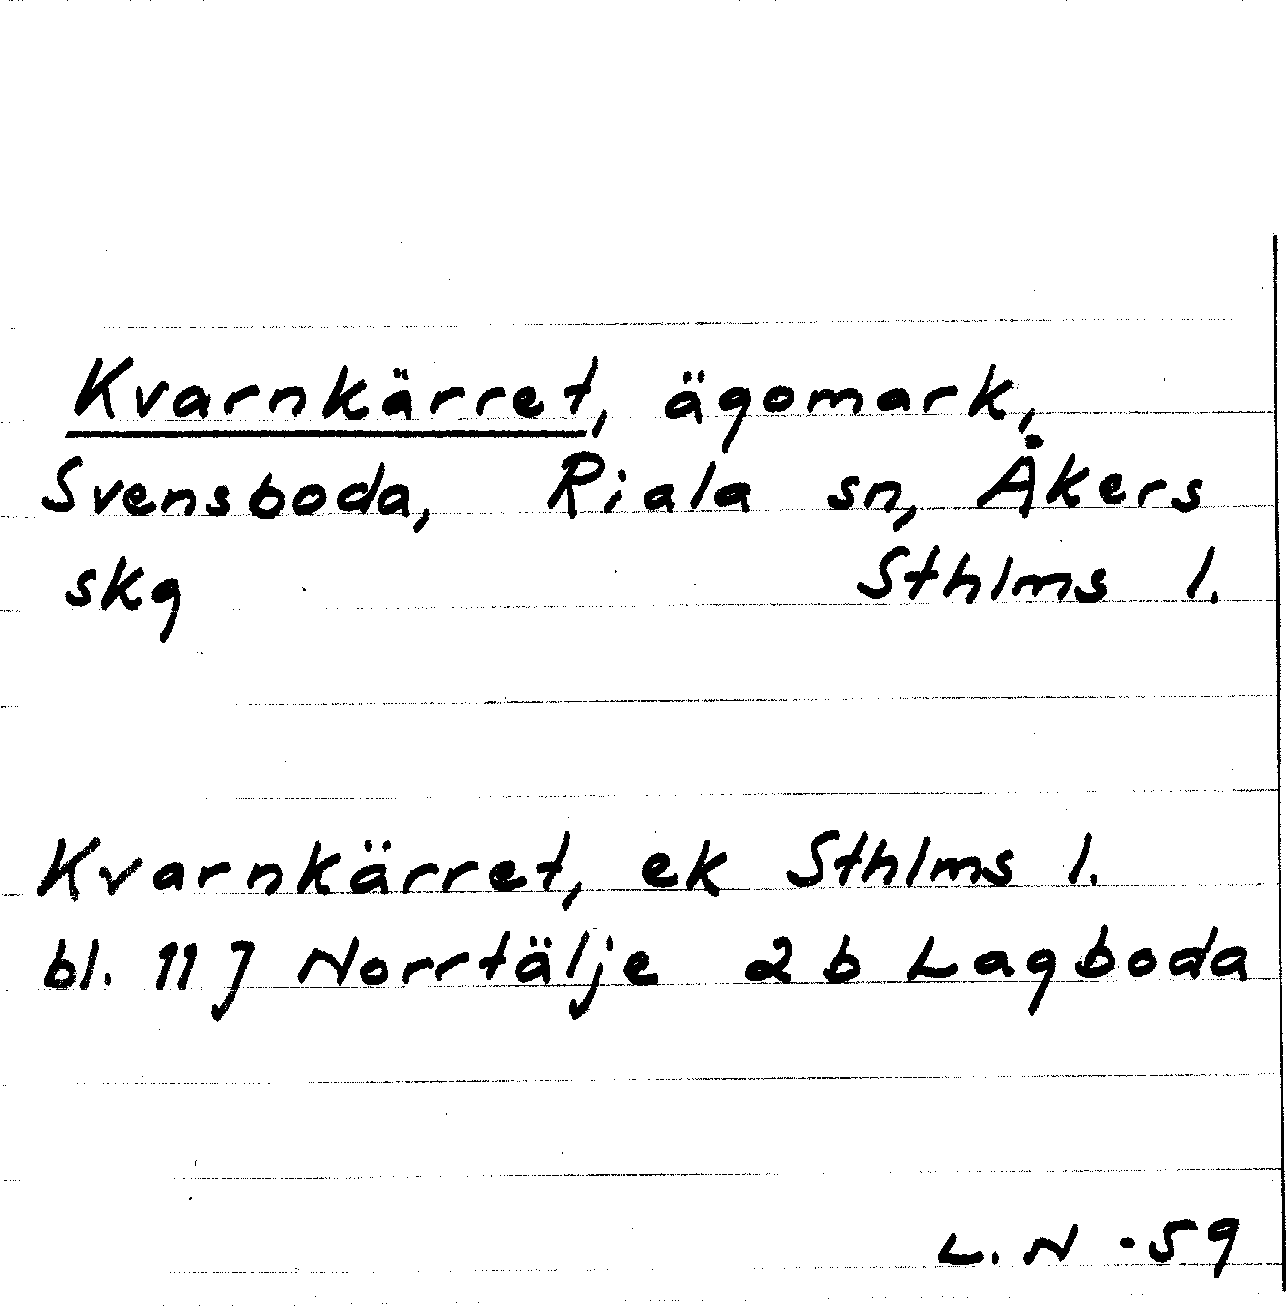 Kvarnkärret, ägomark,
Svensboda, Riala sn, Åkers
skg Sthlms l.
Kvarnkärret, ek Sthlms l.
bl. 11 J Norrtälje 2 b Lagboda
L. N -59